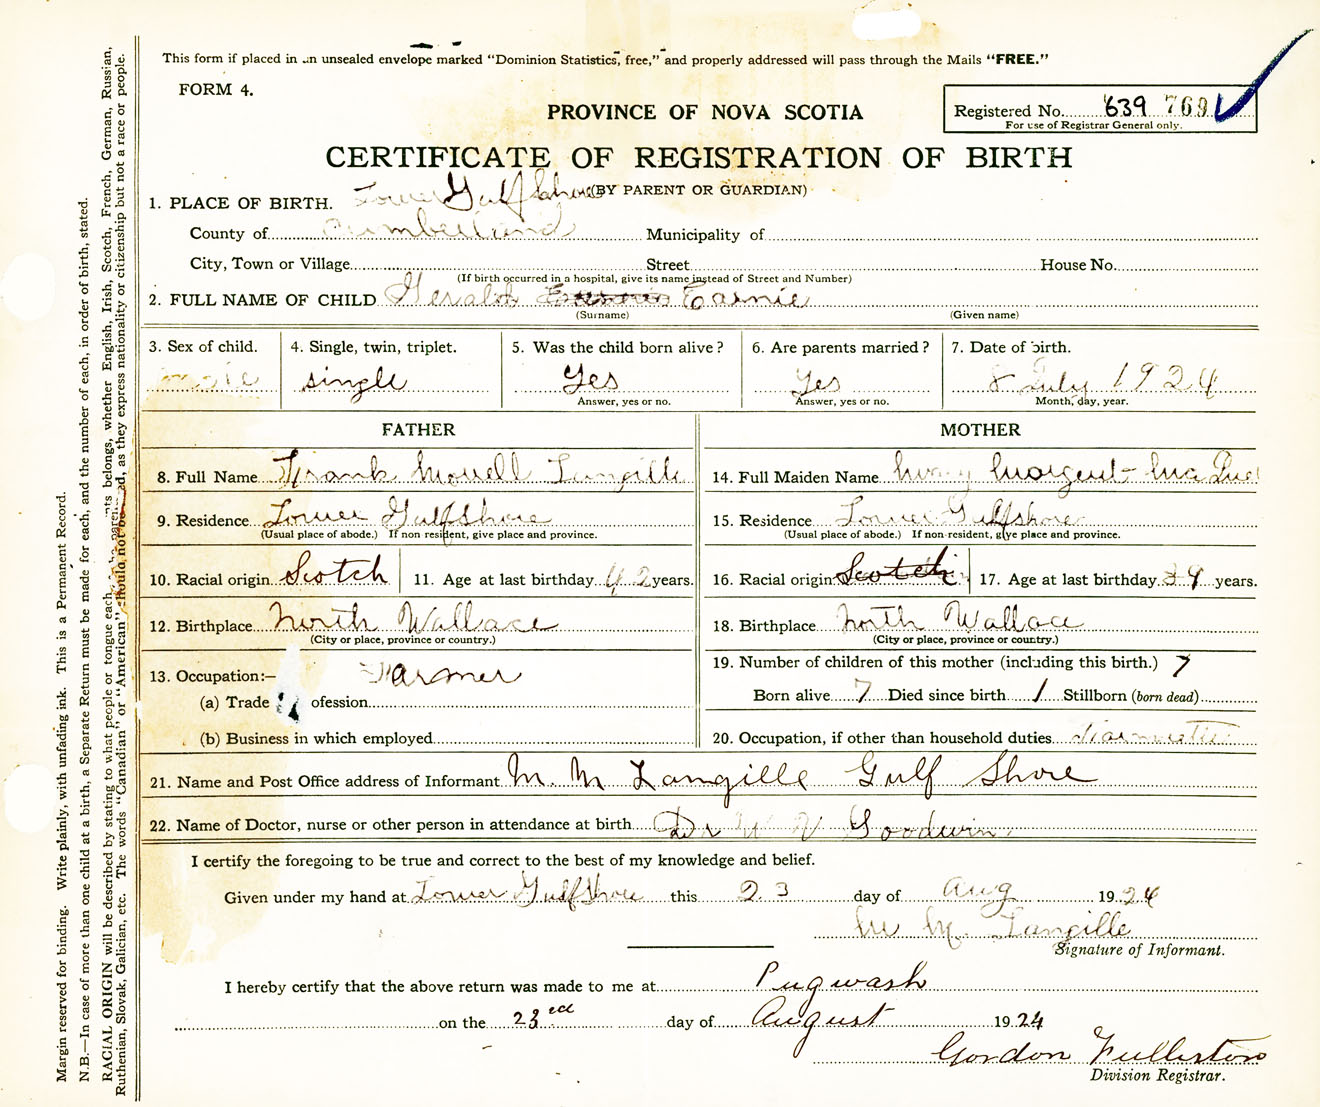 This form if placed in an unsealed envelope marked "Dominion Statistics, free," and properly addressed will pass through the Mails "FREE."
FORM 4.
Registered No. 639 769
For use of Registrar General only.
PROVINCE OF NOVA SCOTIA
CERTIFICATE OF REGISTRATION OF BIRTH
(BY PARENT OR GUARDIAN)
1. PLACE OF BIRTH. Lower Gulf Shore
County of Cumberland Municipality of
City, Town or Village Street House No.
(If birth occurred in a hospital, give its name instead of Street and Number)
2. FULL NAME OF CHILD Gerald Earnie
(Surname) (Given name)
3. Sex of child. 4. Single, twin, triplet. 5. Was the child born alive? 6. Are parents married? 7. Date of birth.
male single Yes Yes 8 July 1924
Answer, yes or no. Answer, yes or no. Month, day, year.
FATHER MOTHER
8. Full Name Frank Langille 14. Full Maiden Name Margent
9. Residence Lower Gulfshore 15. Residence Lower Gulfshore
(Usual place of abode.) If non resident, give place and province. (Usual place of abode.) If non-resident, give place and province.
10. Racial origin Scotch 11. Age at last birthday 42 years. 16. Racial origin Scotch 17. Age at last birthday 39 years.
12. Birthplace North Wallace 18. Birthplace North Wallace
(City or place, province or country.) (City or place, province or country.)
13. Occupation:— Farmer 19. Number of children of this mother (including this birth.) 7
(a) Trade ofession Born alive 7 Died since birth 1 Stillborn (born dead)
(b) Business in which employed 20. Occupation, if other than household duties
21. Name and Post Office address of Informant M. M Langille Gulf Shore
22. Name of Doctor, nurse or other person in attendance at birth Dr W V Goodwin
I certify the foregoing to be true and correct to the best of my knowledge and belief.
Given under my hand at Lower Gulf Shore this 23 day of Aug 1924
M M. Langille
Signature of Informant.
I hereby certify that the above return was made to me at Pugwash
on the 23rd day of August 1924
Gordon Fullerton
Division Registrar.
Margin reserved for binding. Write plainly, with unfading ink. This is a Permanent Record.
N.B.—In case of more than one child at a birth, a Separate Return must be made for each, and the number of each, in order of birth, stated.
RACIAL ORIGIN will be described by stating to what people or tongue each belongs, whether English, Irish, Scotch, French, German, Russian,
Ruthenian, Slovak, Galician, etc. The words "Canadian" or "American" should not be as they express nationality or citizenship but not a race or people.